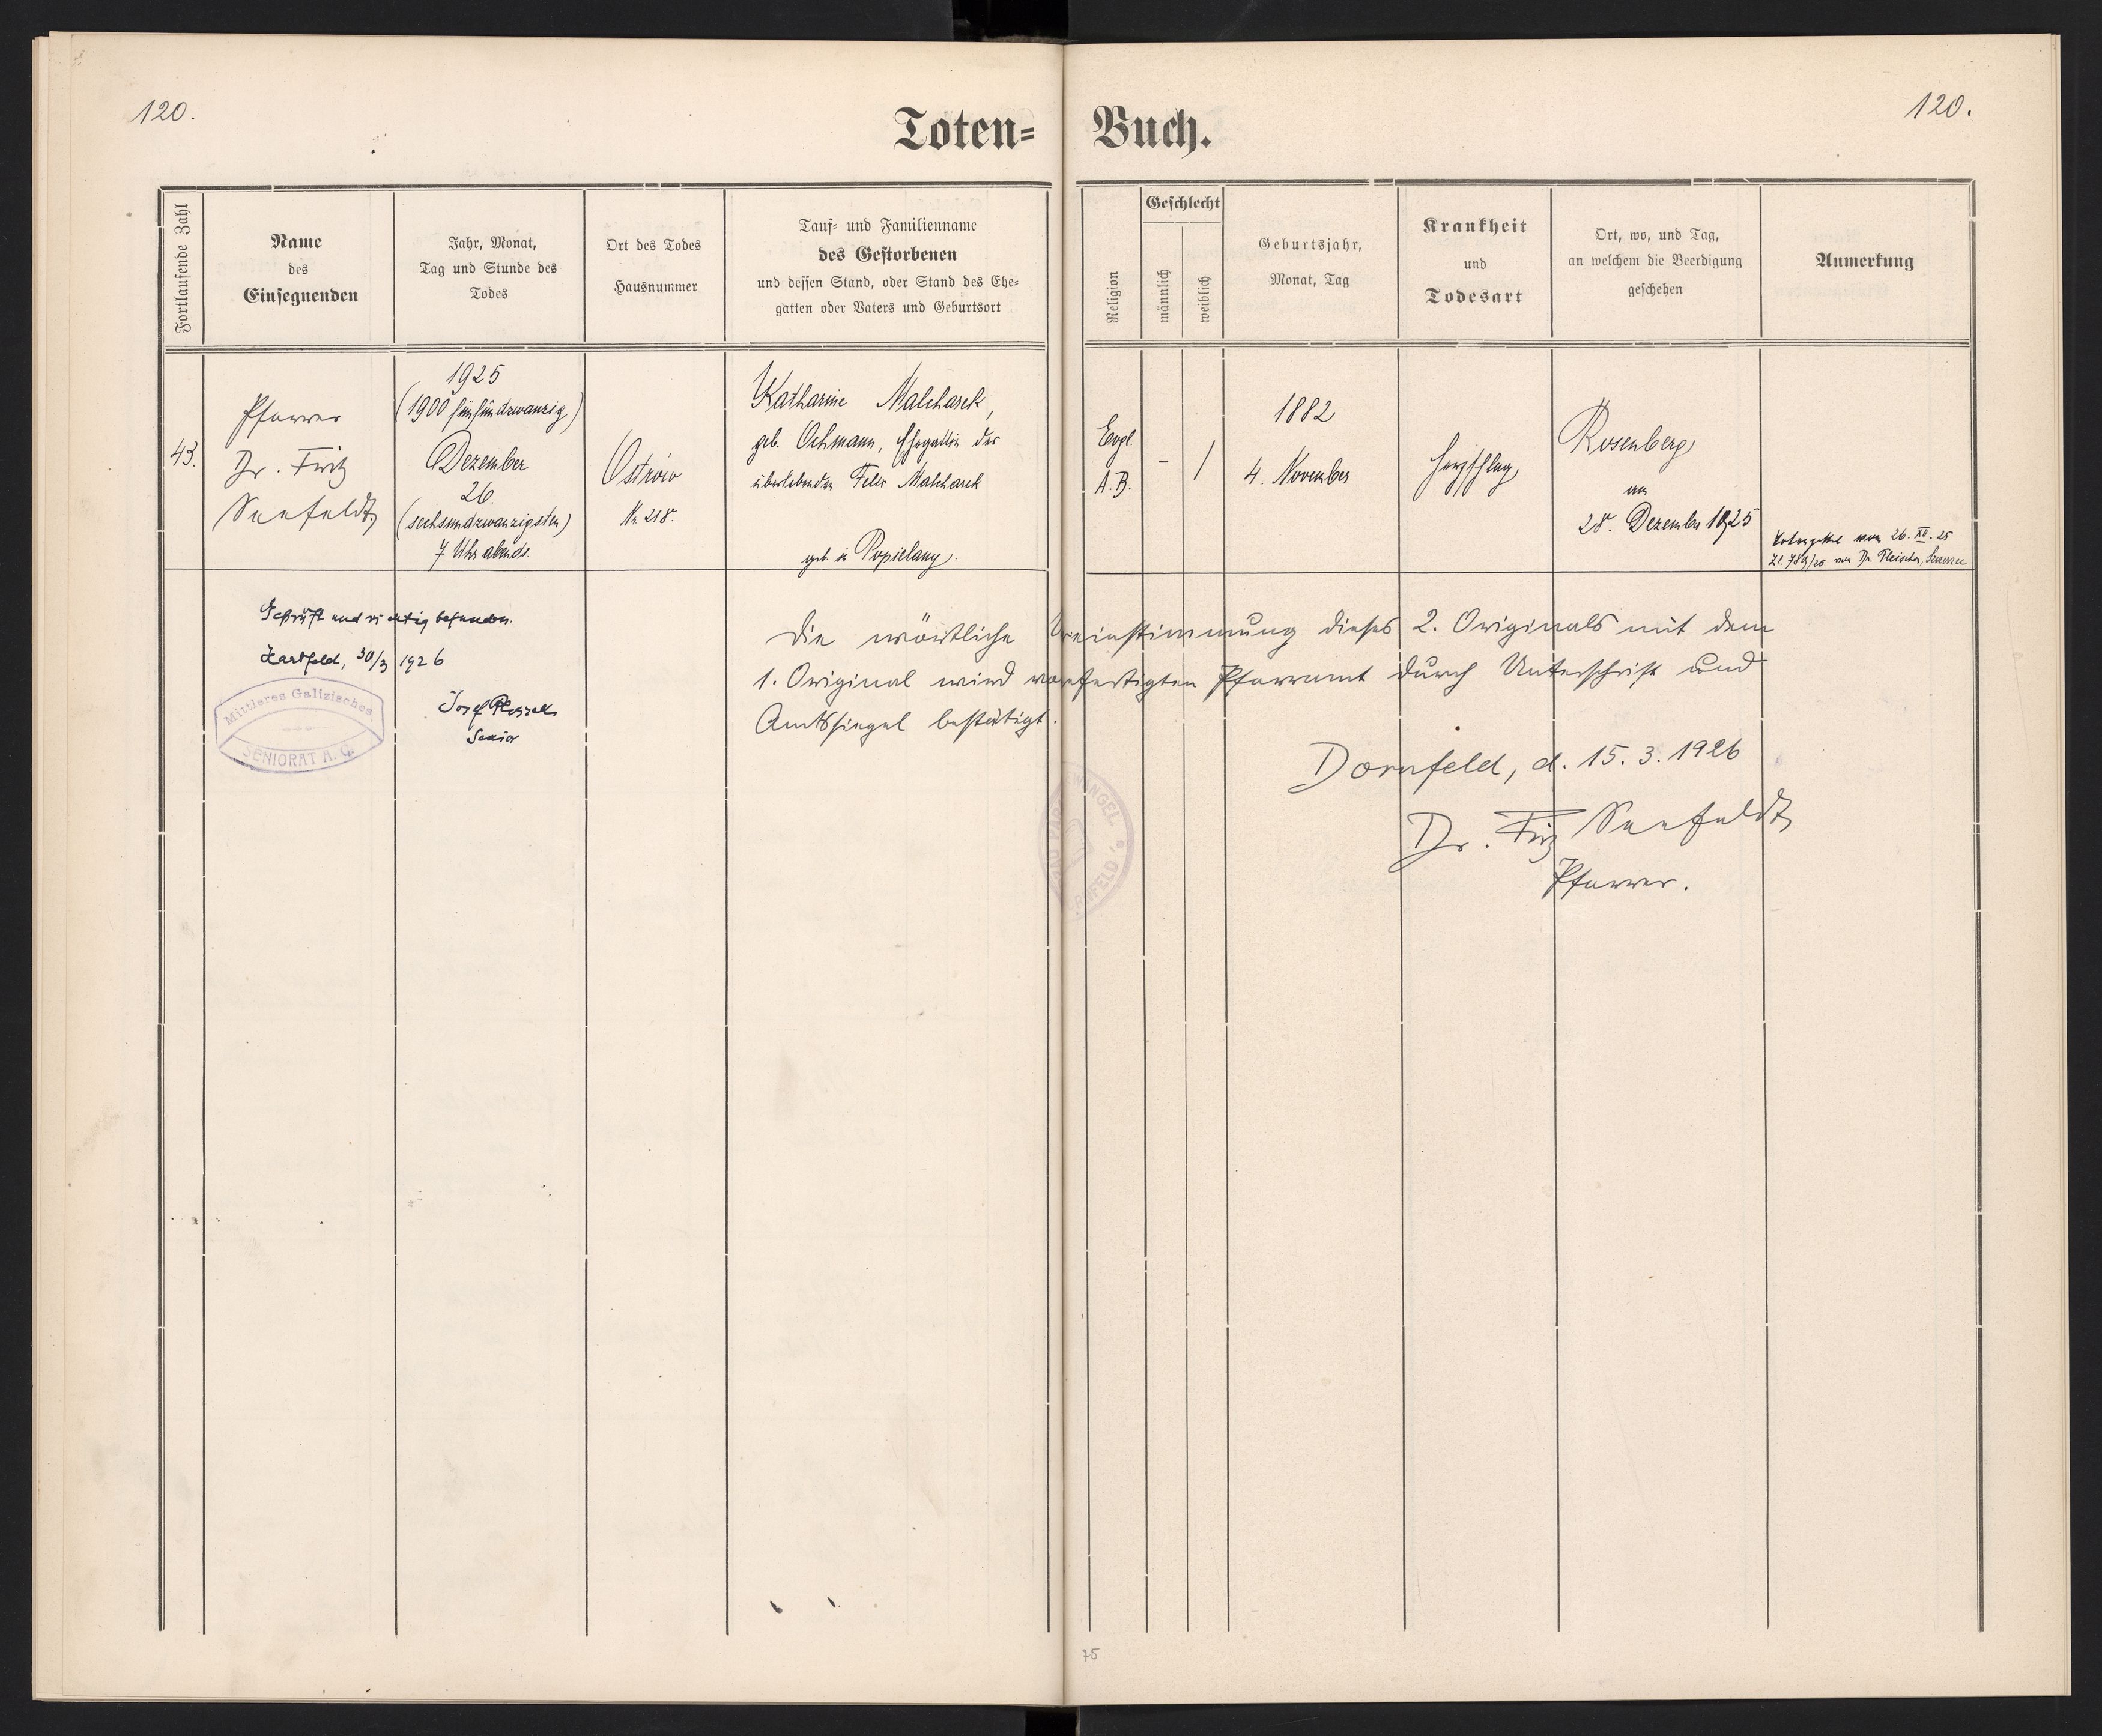 120.
120.
Toten=
Buch.
Fortlaufende Zahl
Name
des
Einsegnenden
Jahr, Monat,
Tag und Stunde des
Todes
Ort des Todes
Hausnummer
Tauf= und Familienname
des Gestorbenen
und dessen Stand, oder Stand des Ehe=
gatten oder Vaters und Geburtsort
Religion
Geschlecht
männlich
weiblich
Geburtsjahr,
Monat, Tag
Krankheit
und
Todesart
Ort, wo, und Tag,
an welchem die Beerdigung
geschehen
Anmerkung
43.
Pfarrer
Dr. Fritz
Seefeldt
1925
(1900 fünfundzwanzig)
Dezember
26.
(sechsundzwanzigsten)
7 Uhr abends.
Ostrów
Nr. 218.
Katharine Malcharek,
geb. Ochmann, Ehegattin des
überlebenden Felix Malcharek
geb. in Popielany.
Evgl.
A.B.
–
/
1882
4. November
Herzschlag
Rosenberg
am
28. Dezember 1925
vom 26. XII. 25
Zl. 789/25 von Dr. Fleischer,
Geprüft und richtig befunden.
Hartfeld, 30/3 1926
Josef
Senior
Mittleres Galizisches
SENIORAT A. C.
Die wörtliche Übereinstimmung dieses 2. Originals mit dem
1. Original wird vom gefertigten Pfarramt durch Unterschrift und
Amtssiegel bestätigt.
Dornfeld, d. 15. 3. 1926
Dr. Fritz Seefeldt
Pfarrer.
75